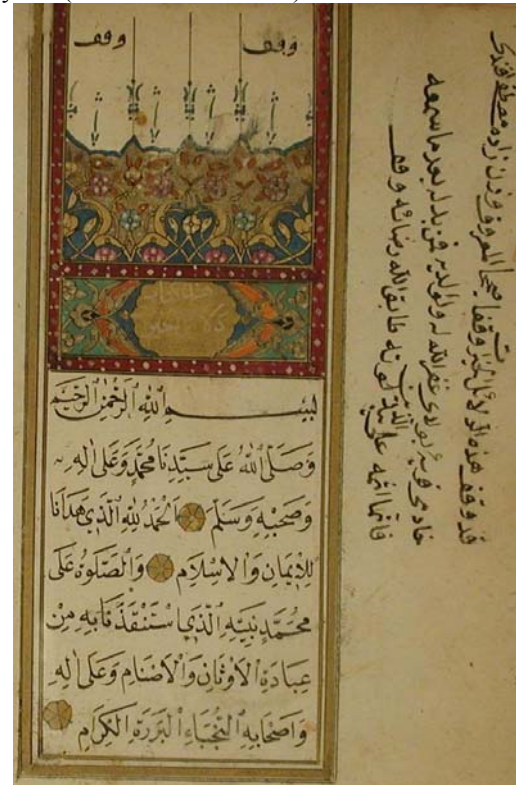 وقف وقف
بسم الله الرحمن الرحيم
وصلى الله على سيدنا محمد وعلى اله
وصحبه وسلم الحمد لله الذي هدانا
للايمان والاسلام والصلوة على
محمد نبيه الذي استنقذنا به من
عبادة الاوثان والاصنام وعلى اله
واصحابه النجباء البررة الكرام
قد وقف هذه الدلائل الخيرات وقفا صحيحا المعروف زاده مصطفى افندى
غفر الله له ولوالديه فمن بدله بعد ما سمعه
فانما اثمه على الذين يبدلونه الله رضائه وقف